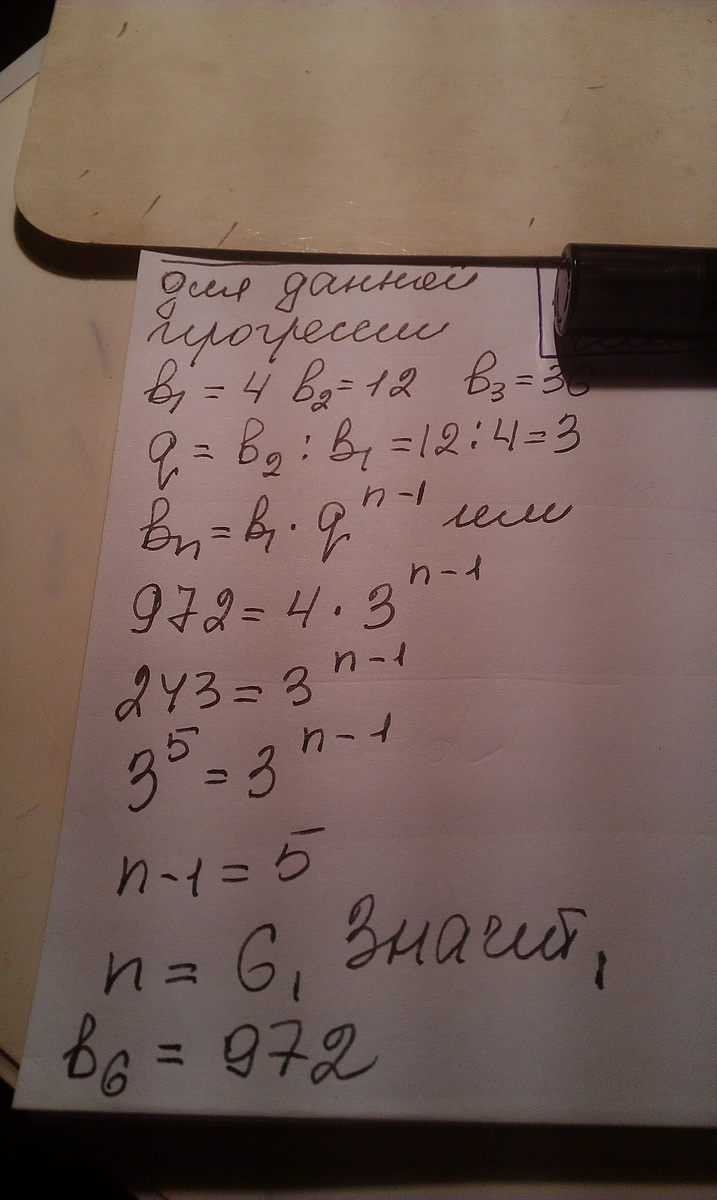 для данной
прогрессии
b₁ = 4 b₂ = 12 b₃ = 36
q = b₂ : b₁ = 12 : 4 = 3
bn = b₁ · q^(n-1) или
972 = 4 · 3^(n-1)
243 = 3^(n-1)
3^5 = 3^(n-1)
n-1 = 5
n = 6, Значит,
b₆ = 972